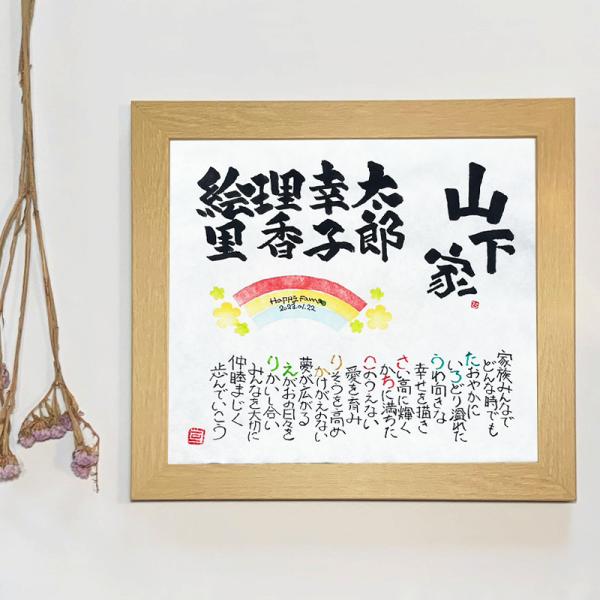 山下
家
太郎
幸子
理香
絵里
Happy
2023.01.22
家族みんなで
どんな時でも
たおやかに
いろどり溢れた
うわ向きな
幸せを描き
さい高に輝く
かちに満ちた
このうえない
愛を育み
りそうを高め
かけがえのない
夢が広がる
えがおの日々を
りかいし合い
みんなを大切に
仲睦まじく
歩んでいこう